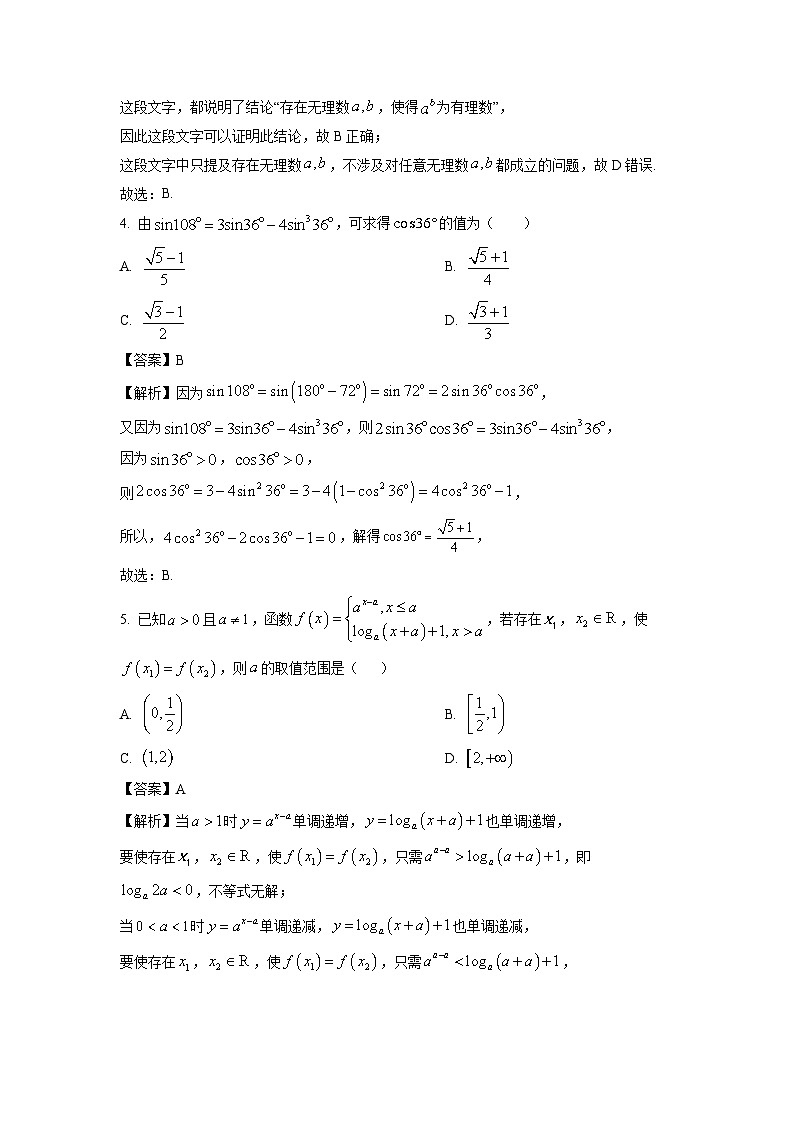 这段文字，都说明了结论“存在无理数a,b，使得a^b为有理数”，
因此这段文字可以证明此结论，故 B 正确；
这段文字中只提及存在无理数a,b，不涉及对任意无理数a,b都成立的问题，故 D 错误.
故选：B.
4. 由sin108°=3sin36°−4sin³36°，可求得cos36°的值为（　　）
A. (√5−1)/5　　B. (√5+1)/4
C. (√3−1)/2　　D. (√3+1)/3
【答案】B
【解析】因为sin108°=sin(180°−72°)=sin72°=2sin36°cos36°，
又因为sin108°=3sin36°−4sin³36°，则2sin36°cos36°=3sin36°−4sin³36°，
因为sin36°>0，cos36°>0，
则2cos36°=3−4sin²36°=3−4(1−cos²36°)=4cos²36°−1，
所以，4cos²36°−2cos36°−1=0，解得cos36°=(√5+1)/4，
故选：B.
5. 已知a>0且a≠1，函数f(x)={a^(x−a),x≤a; log_a(x+a)+1,x>a，若存在x₁，x₂∈R，使
f(x₁)=f(x₂)，则a的取值范围是（　　）
A. (0,1/2)　　B. [1/2,1)
C. (1,2)　　D. [2,+∞)
【答案】A
【解析】当a>1时y=a^(x−a)单调递增，y=log_a(x+a)+1也单调递增，
要使存在x₁，x₂∈R，使f(x₁)=f(x₂)，只需a^(a−a)>log_a(a+a)+1，即
log_a 2a<0，不等式无解；
当0<a<1时y=a^(x−a)单调递减，y=log_a(x+a)+1也单调递减，
要使存在x₁，x₂∈R，使f(x₁)=f(x₂)，只需a^(a−a)<log_a(a+a)+1，